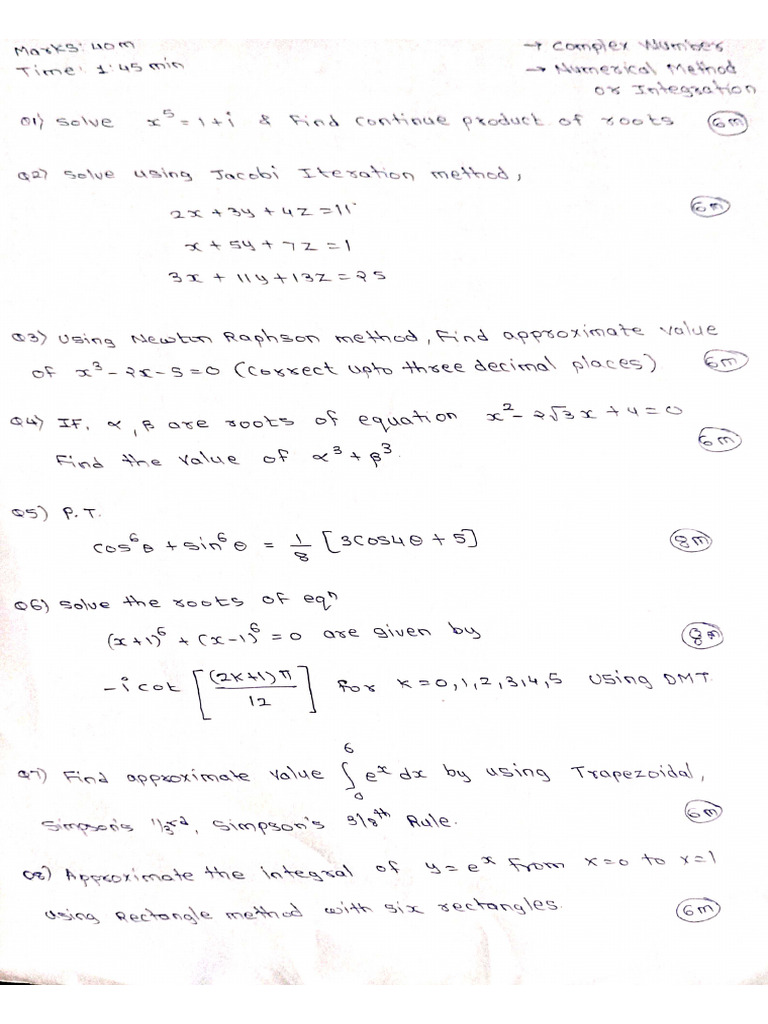 Marks: 40m → Complex Number
Time: 1:45 min → Numerical Method
or Integration
Q1) solve x⁵ = 1+i & Find continue product of roots (6m)
Q2) Solve using Jacobi Iteration method,
2x + 3y + 4z = 11 (6m)
x + 5y + 7z = 1
3x + 11y + 13z = 25
Q3) Using Newton Raphson method, Find approximate value
of x³ - 2x - 5 = 0 (correct upto three decimal places) (6m)
Q4) IF, α, β are roots of equation x² - 2√3x + 4 = 0
Find the value of α³ + β³. (6m)
Q5) P.T.
cos⁶θ + sin⁶θ = 1/8 [3cos4θ + 5] (8m)
Q6) Solve the roots of eqⁿ
(x+1)⁶ + (x-1)⁶ = 0 are given by (8m)
-i cot [(2K+1)π/12] for K = 0,1,2,3,4,5 using DMT
Q7) Find approximate value ∫₀⁶ eˣ dx by using Trapezoidal,
Simpson's 1/3rd, Simpson's 3/8th Rule. (6m)
Q8) Approximate the integral of y = eˣ from x=0 to x=1
using Rectangle method with six rectangles. (6m)